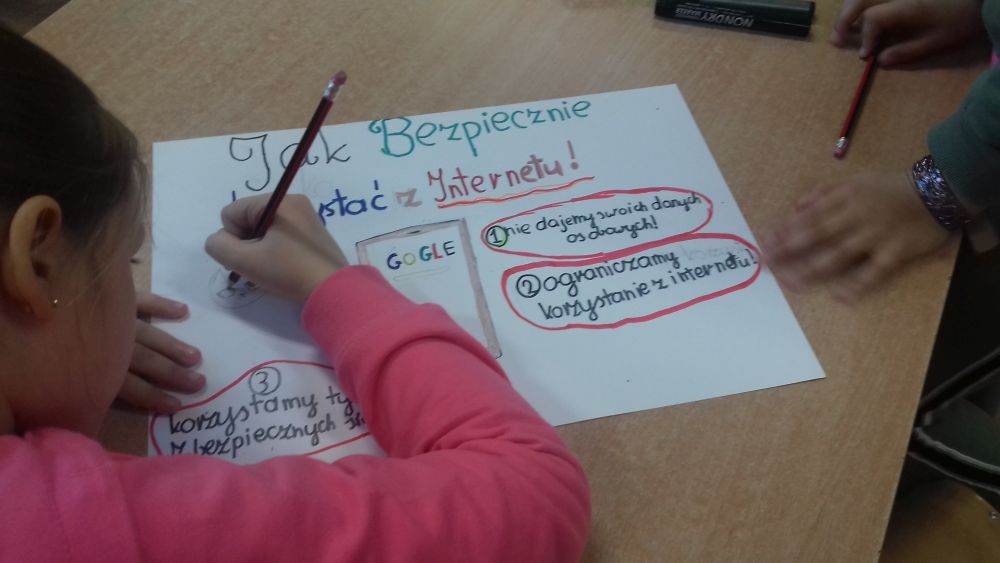 Jak Bezpiecznie
ystać z Internetu!
GOGLE
1 nie dajemy swoich danych
osobowych!
2 ograniczamy
korzystanie z internetu!
3
korzystamy ty
z bezpiecznych
NONDRY MARKER